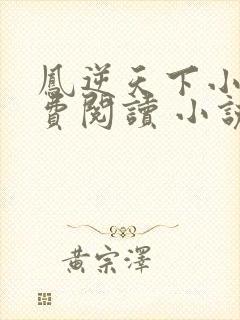 鳳逆天下小
費閱讀 小說
黃宗澤